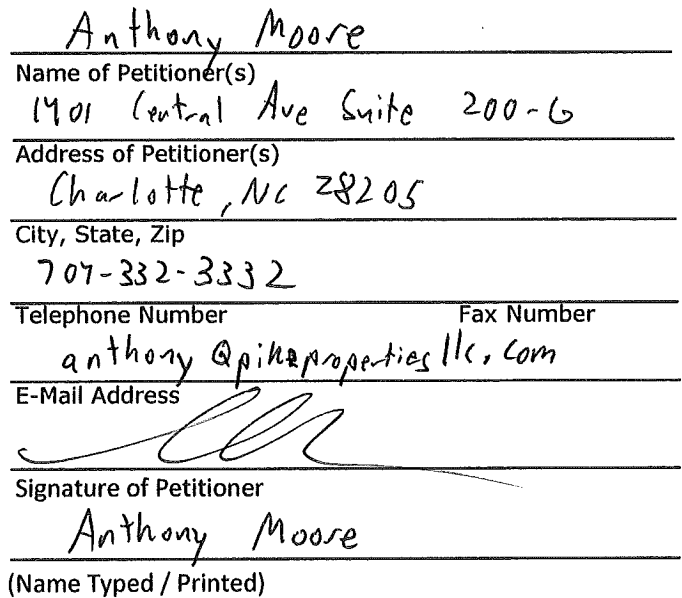 Anthony Moore
Name of Petitioner(s)
1401 Central Ave Suite 200-G
Address of Petitioner(s)
Charlotte, NC 28205
City, State, Zip
704-332-3332
Telephone Number Fax Number
anthony@pikeproperties llc.com
E-Mail Address
Signature of Petitioner
Anthony Moore
(Name Typed / Printed)